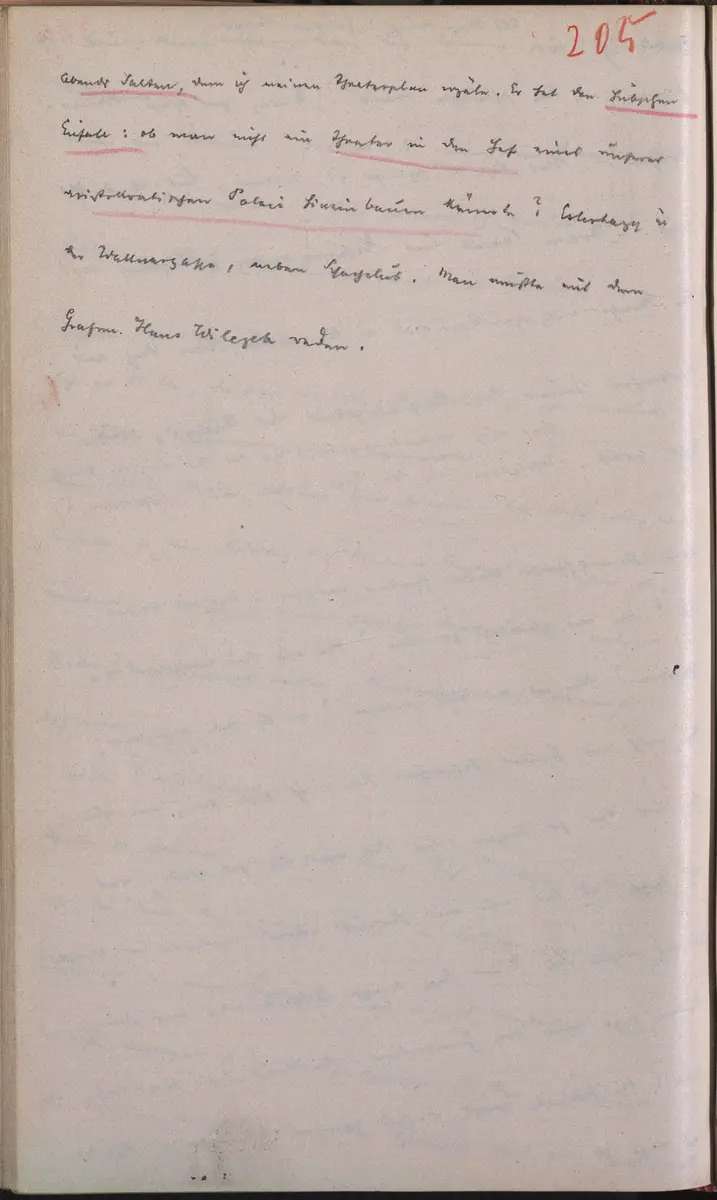 205
abends Salten, dem ich meinen Theaterplan erzäle. Er hat den hübschen
Einfall: ob man nicht ein Theater in den Hof eines unserer
aristokratischen Palais hineinbauen könnte? Esterhazy in
der Wallnergasse, neben Schachclub. Man müßte mit dem
Grafen Hans Wilczek reden.